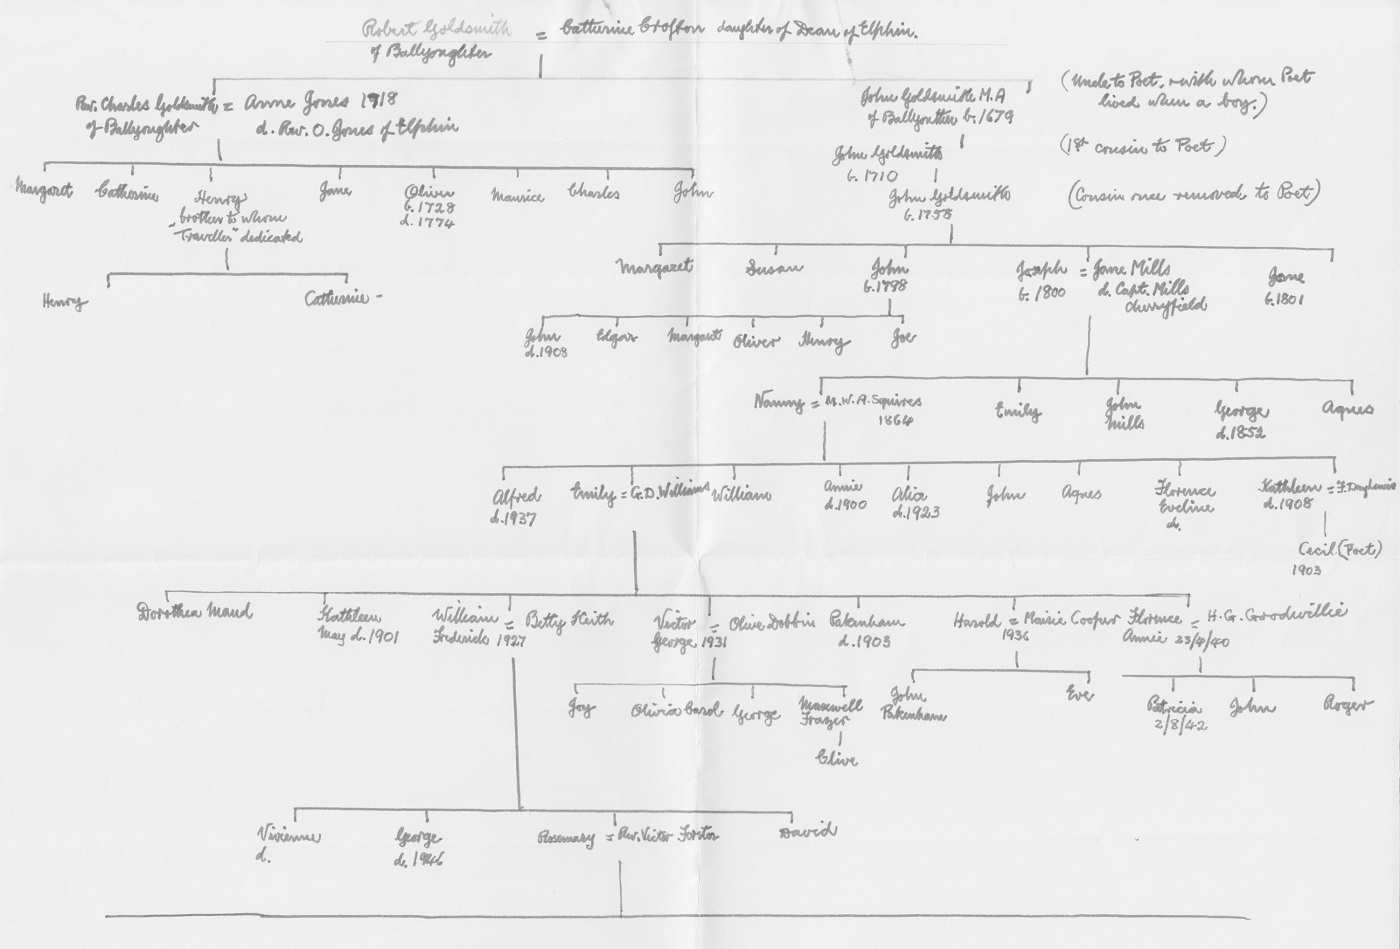 Robert Goldsmith = Catherine Crofton daughter of Dean of Elphin.
of Ballyoughter
Rev. Charles Goldsmith = Anne Jones 1918
of Ballyoughter d. Rev. O. Jones of Elphin
John Goldsmith M.A
of Ballyoutter b. 1679
(Uncle to Poet, with whom Poet
lived when a boy.)
John Goldsmith
b. 1710
(1st cousin to Poet)
John Goldsmith
b. 1758
(Cousin once removed to Poet)
Margaret Catherine Henry Jane Oliver Maurice Charles John
brother to whom
"Traveller" dedicated
b. 1728
d. 1774
Henry Catherine -
Margaret Susan John Joseph = Jane Mills Jane
b. 1798 b. 1800 d. Capt. Mills b. 1801
Cherryfield
John Edgar Margaret Oliver Henry Joe
d. 1908
Nanny = M.W.A. Squires Emily John George Agnes
1864 Mills d. 1852
Alfred Emily = G.D. Williams William Annie Alice John Agnes Florence Kathleen =
d. 1937 d. 1900 d. 1923 Eveline d. 1908
d.
Cecil (Poet)
1903
Dorothea Maud Kathleen William = Betty Keith Victor = Olive Dobbin Pakenham Harold = Maisie Cooper Florence = H.G. Goodwillie
May d. 1901 Frederick 1927 George 1931 d. 1903 1936 Annie 23/4/40
Joy Olivia Carol George Maxwell John Eve Patricia John Roger
Frazer Pakenham 2/8/42
Clive
Vivienne George Rosemary = Rev. Victor Forster David
d. d. 1946